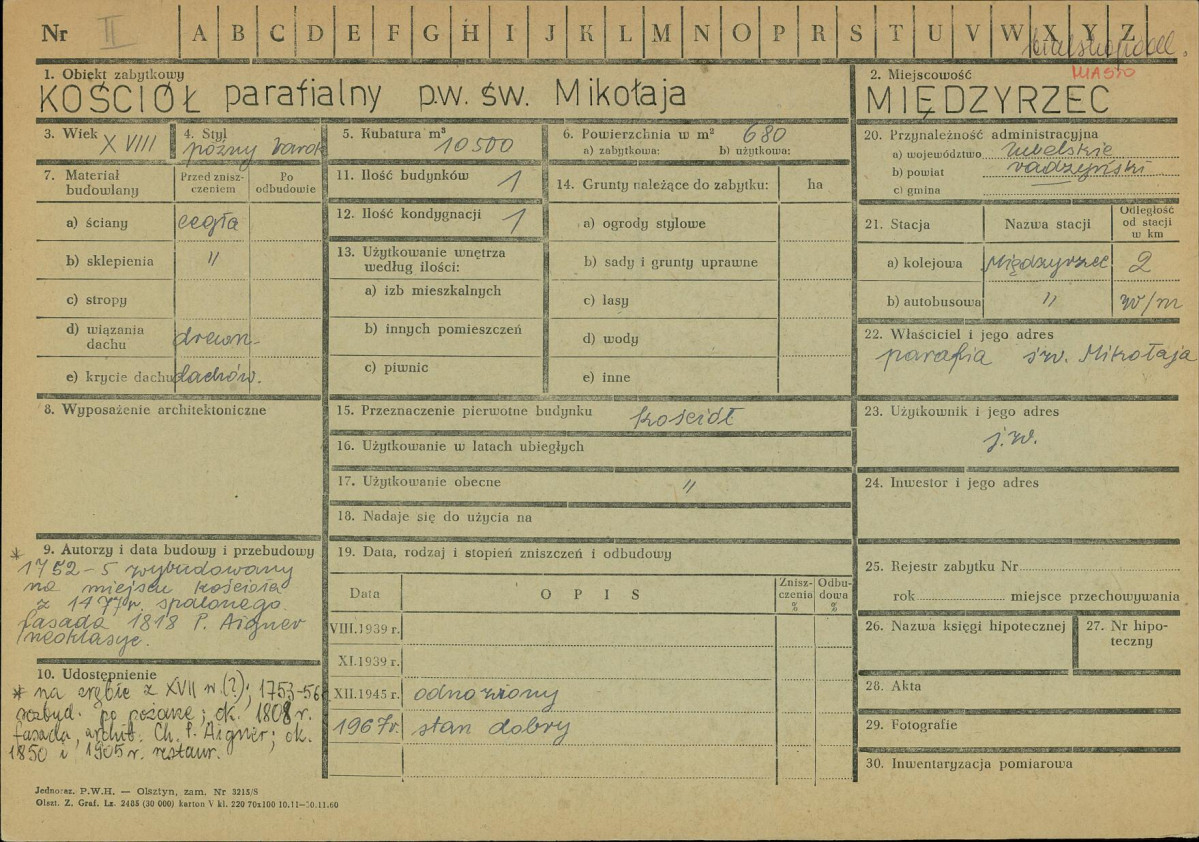 Nr II A B C D E F G H I J K L M N O P R S T U V W X Y Z
MIASTO
1. Obiekt zabytkowy
KOŚCIÓŁ parafialny p.w. św. Mikołaja
2. Miejscowość
MIĘDZYRZEC
3. Wiek XVIII
4. Styl
późny barok
5. Kubatura m³
10500
6. Powierzchnia w m² 680
a) zabytkowa: b) użytkowa:
20. Przynależność administracyjna
a) województwo lubelskie
b) powiat radzyński
c) gmina
7. Materiał budowlany
Przed zniszczeniem
Po odbudowie
a) ściany cegła
b) sklepienia "
c) stropy
d) wiązania dachu drewn.
e) krycie dachu dachów.
11. Ilość budynków 1
12. Ilość kondygnacji 1
13. Użytkowanie wnętrza
według ilości:
a) izb mieszkalnych
b) innych pomieszczeń
c) piwnic
14. Grunty należące do zabytku: ha
a) ogrody stylowe
b) sady i grunty uprawne
c) lasy
d) wody
e) inne
21. Stacja Nazwa stacji
Odległość
od stacji
w km
a) kolejowa Międzyrzec 2
b) autobusowa " w/m
22. Właściciel i jego adres
parafia św. Mikołaja
8. Wyposażenie architektoniczne
15. Przeznaczenie pierwotne budynku kościół
16. Użytkowanie w latach ubiegłych
17. Użytkowanie obecne "
18. Nadaje się do użycia na
23. Użytkownik i jego adres
j.w.
24. Inwestor i jego adres
9. Autorzy i data budowy i przebudowy
* 1752-5 wybudowany
na miejscu kościoła
z 1477 r. spalonego.
fasada 1818 P. Aigner
neoklasyc.
10. Udostępnienie
* na zrębie z XVII w.(?); 1753-56
rozbud. po pożarze; ok. 1808 r.
fasada, archit. Ch. P. Aigner; ok.
1850 i 1905 r. restaur.
19. Data, rodzaj i stopień zniszczeń i odbudowy
Data OPIS
Zniszczenia %
Odbudowa %
VIII.1939 r.
XI.1939 r.
XII.1945 r. odnowiony
1967r. stan dobry
25. Rejestr zabytku Nr
rok miejsce przechowywania
26. Nazwa księgi hipotecznej
27. Nr hipoteczny
28. Akta
29. Fotografie
30. Inwentaryzacja pomiarowa
Jednoraz. P.W.H. — Olsztyn, zam. Nr 3215/S
Olszt. Z. Graf. Lz. 2485 (30 000) karton V kl. 220 70x100 10.11—30.11.60